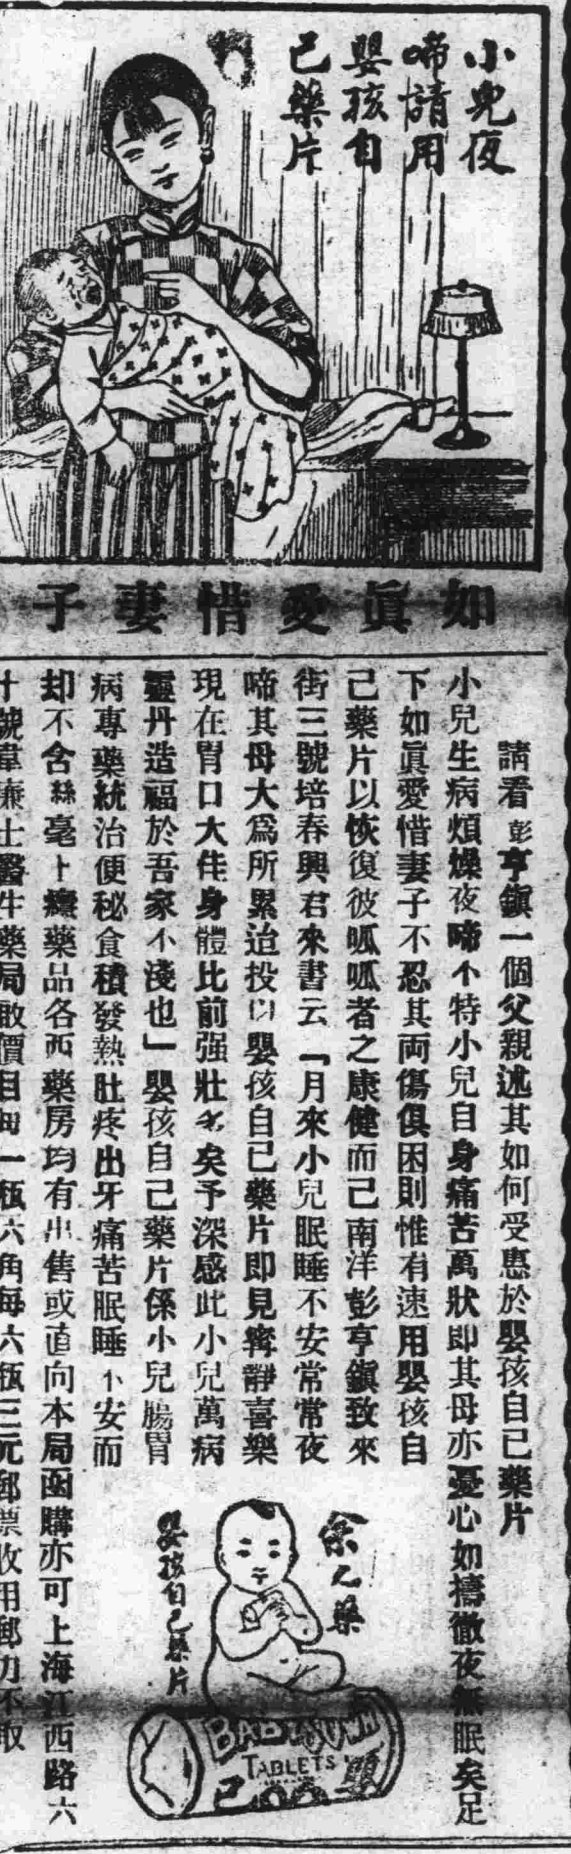 小兒夜
啼請用
嬰孩自
己藥片
如眞愛惜妻子
請看彭亨鎭一個父親述其如何受惠於嬰孩自己藥片
小兒生病煩燥夜啼不特小兒自身痛苦萬狀即其母亦憂心如擣徹夜無眠矣足
下如眞愛惜妻子不忍其両傷俱困則惟有速用嬰孩自
己藥片以恢復彼呱呱者之康健而已南洋彭亨鎭致來
街三號培春興君來書云「月來小兒眠睡不安常常夜
啼其母大爲所累迨投以嬰孩自己藥片即見寗靜喜樂
現在胃口大佳身體比前强壯多矣予深感此小兒萬病
靈丹造福於吾家不淺也」嬰孩自己藥片係小兒腸胃
病專藥統治便秘食積發熱肚疼出牙痛苦眠睡不安而
却不含絲毫藥品各西藥房均有出售或直向本局函購亦可上海江西路六
十號韋廉士醫生藥局啟價目每一瓶六角每六瓶三元郵票收用郵力不取
余之藥
嬰孩自己藥片
BABY'S OWN
TABLETS
己